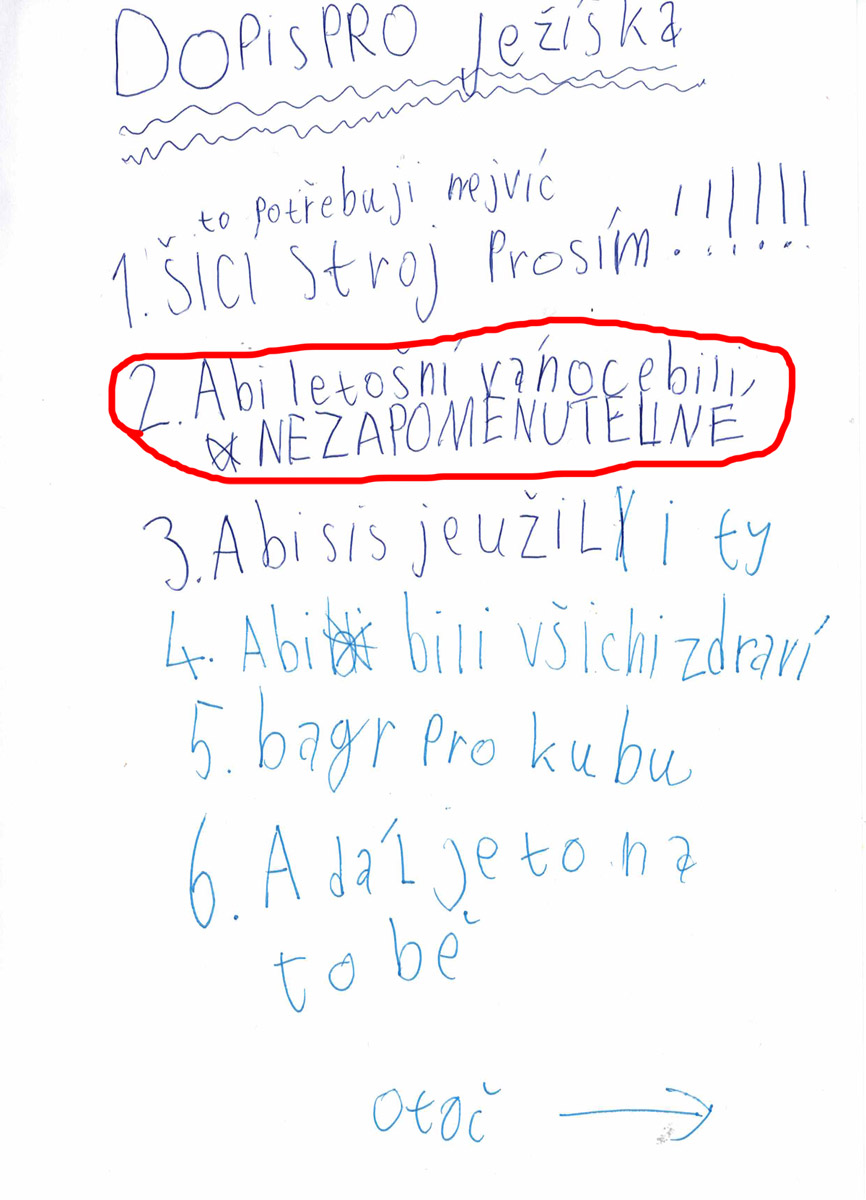 DOPiSPRO Ježíška
to potřebuji nejvíc
1. ŠICI Stroj Prosím!!!!!!!
2. Abi letošní váńoce bili,
NEZAPOMENUTELNE
3. Abi sis jeužiL i ty
4. Abi bili všichi zdraví
5. bagr pro kubu
6. A dáL jeto na
tobě
otoč →